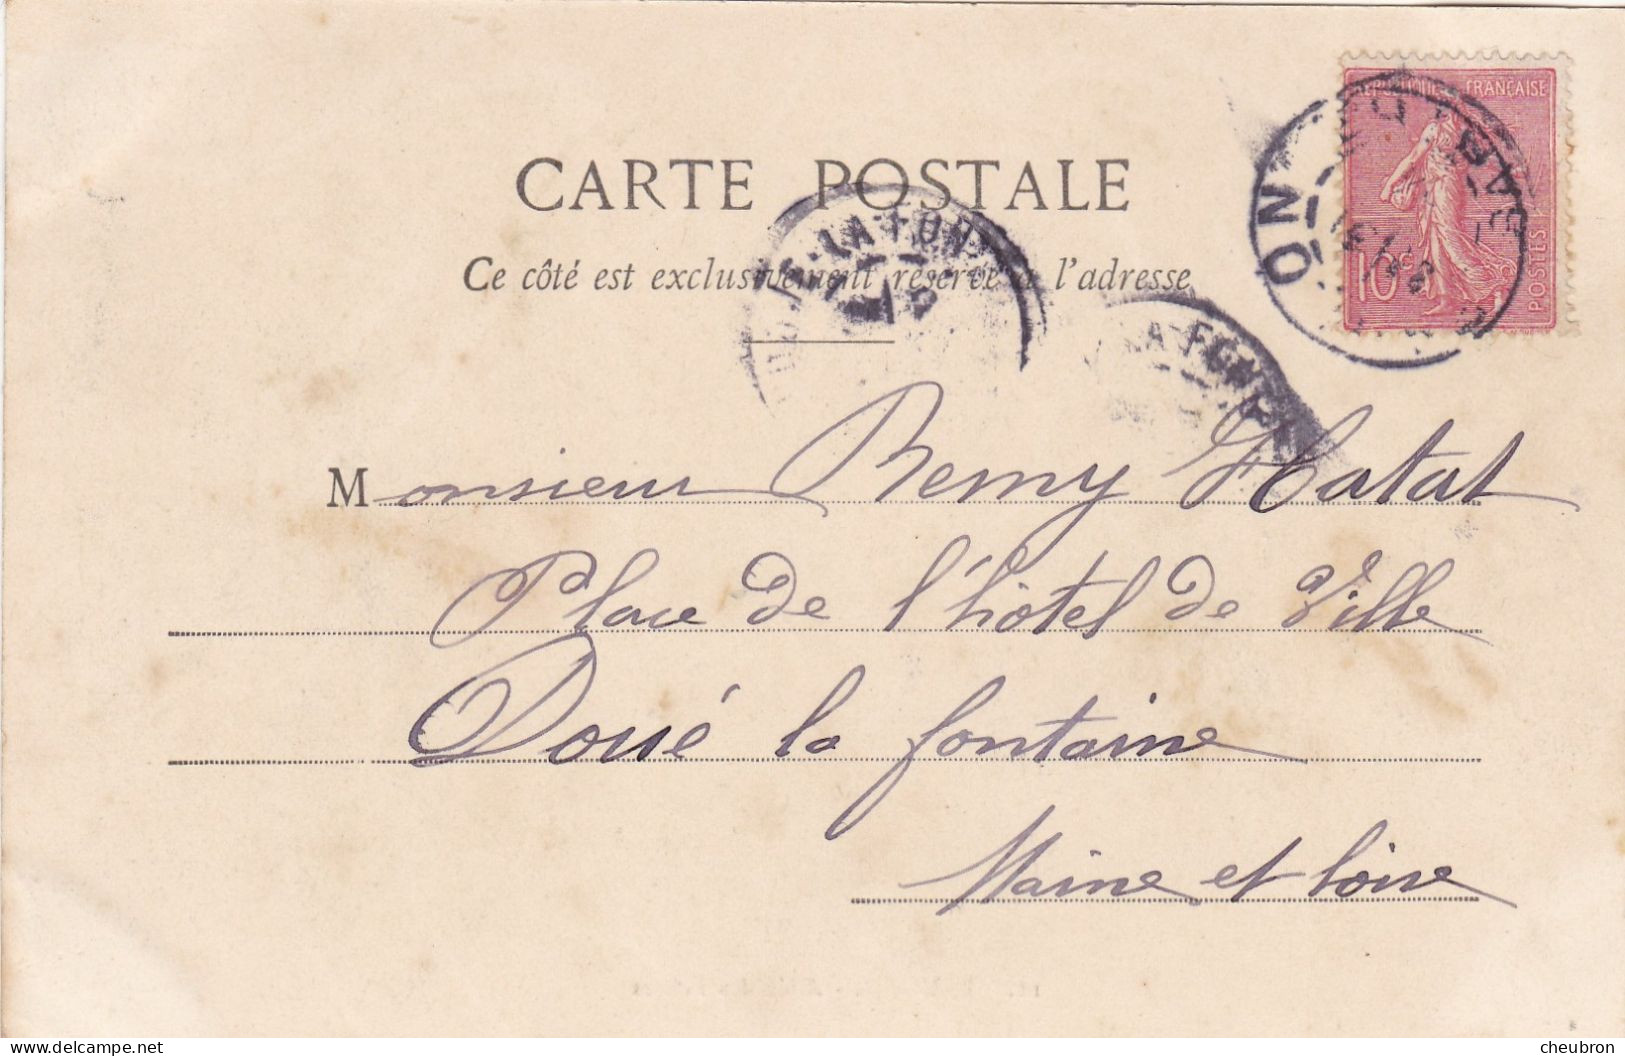 RÉPUBLIQUE FRANÇAISE
10c
POSTES
CARTE POSTALE
LA-FONT
Ce côté est exclusivement réservé à l'adresse
LA-FONT
Monsieur Remy Hatat
Place de l'hôtel de Ville
Doué la fontaine
Maine et Loire
delcampe.net
cheubron